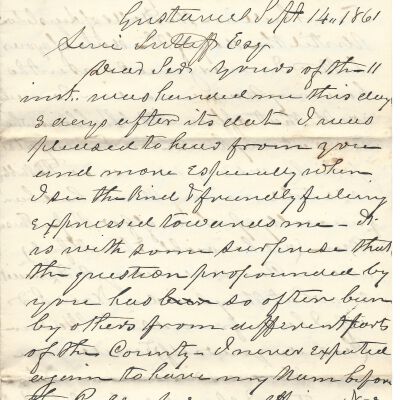 Gustavus Sept 14.. 1861
Levi Sutliff Esq
Dear Sir Yours of the 11
inst.. was handed me this day
3 days after its date I was
pleased to hear from you
and more especially when
I see the kind & friendly feeling
expressed towards me - It
is with some surprise that
the question propounded by
you has been so often been
by others from different parts
of the County - I never expected
again to have my Name before
the